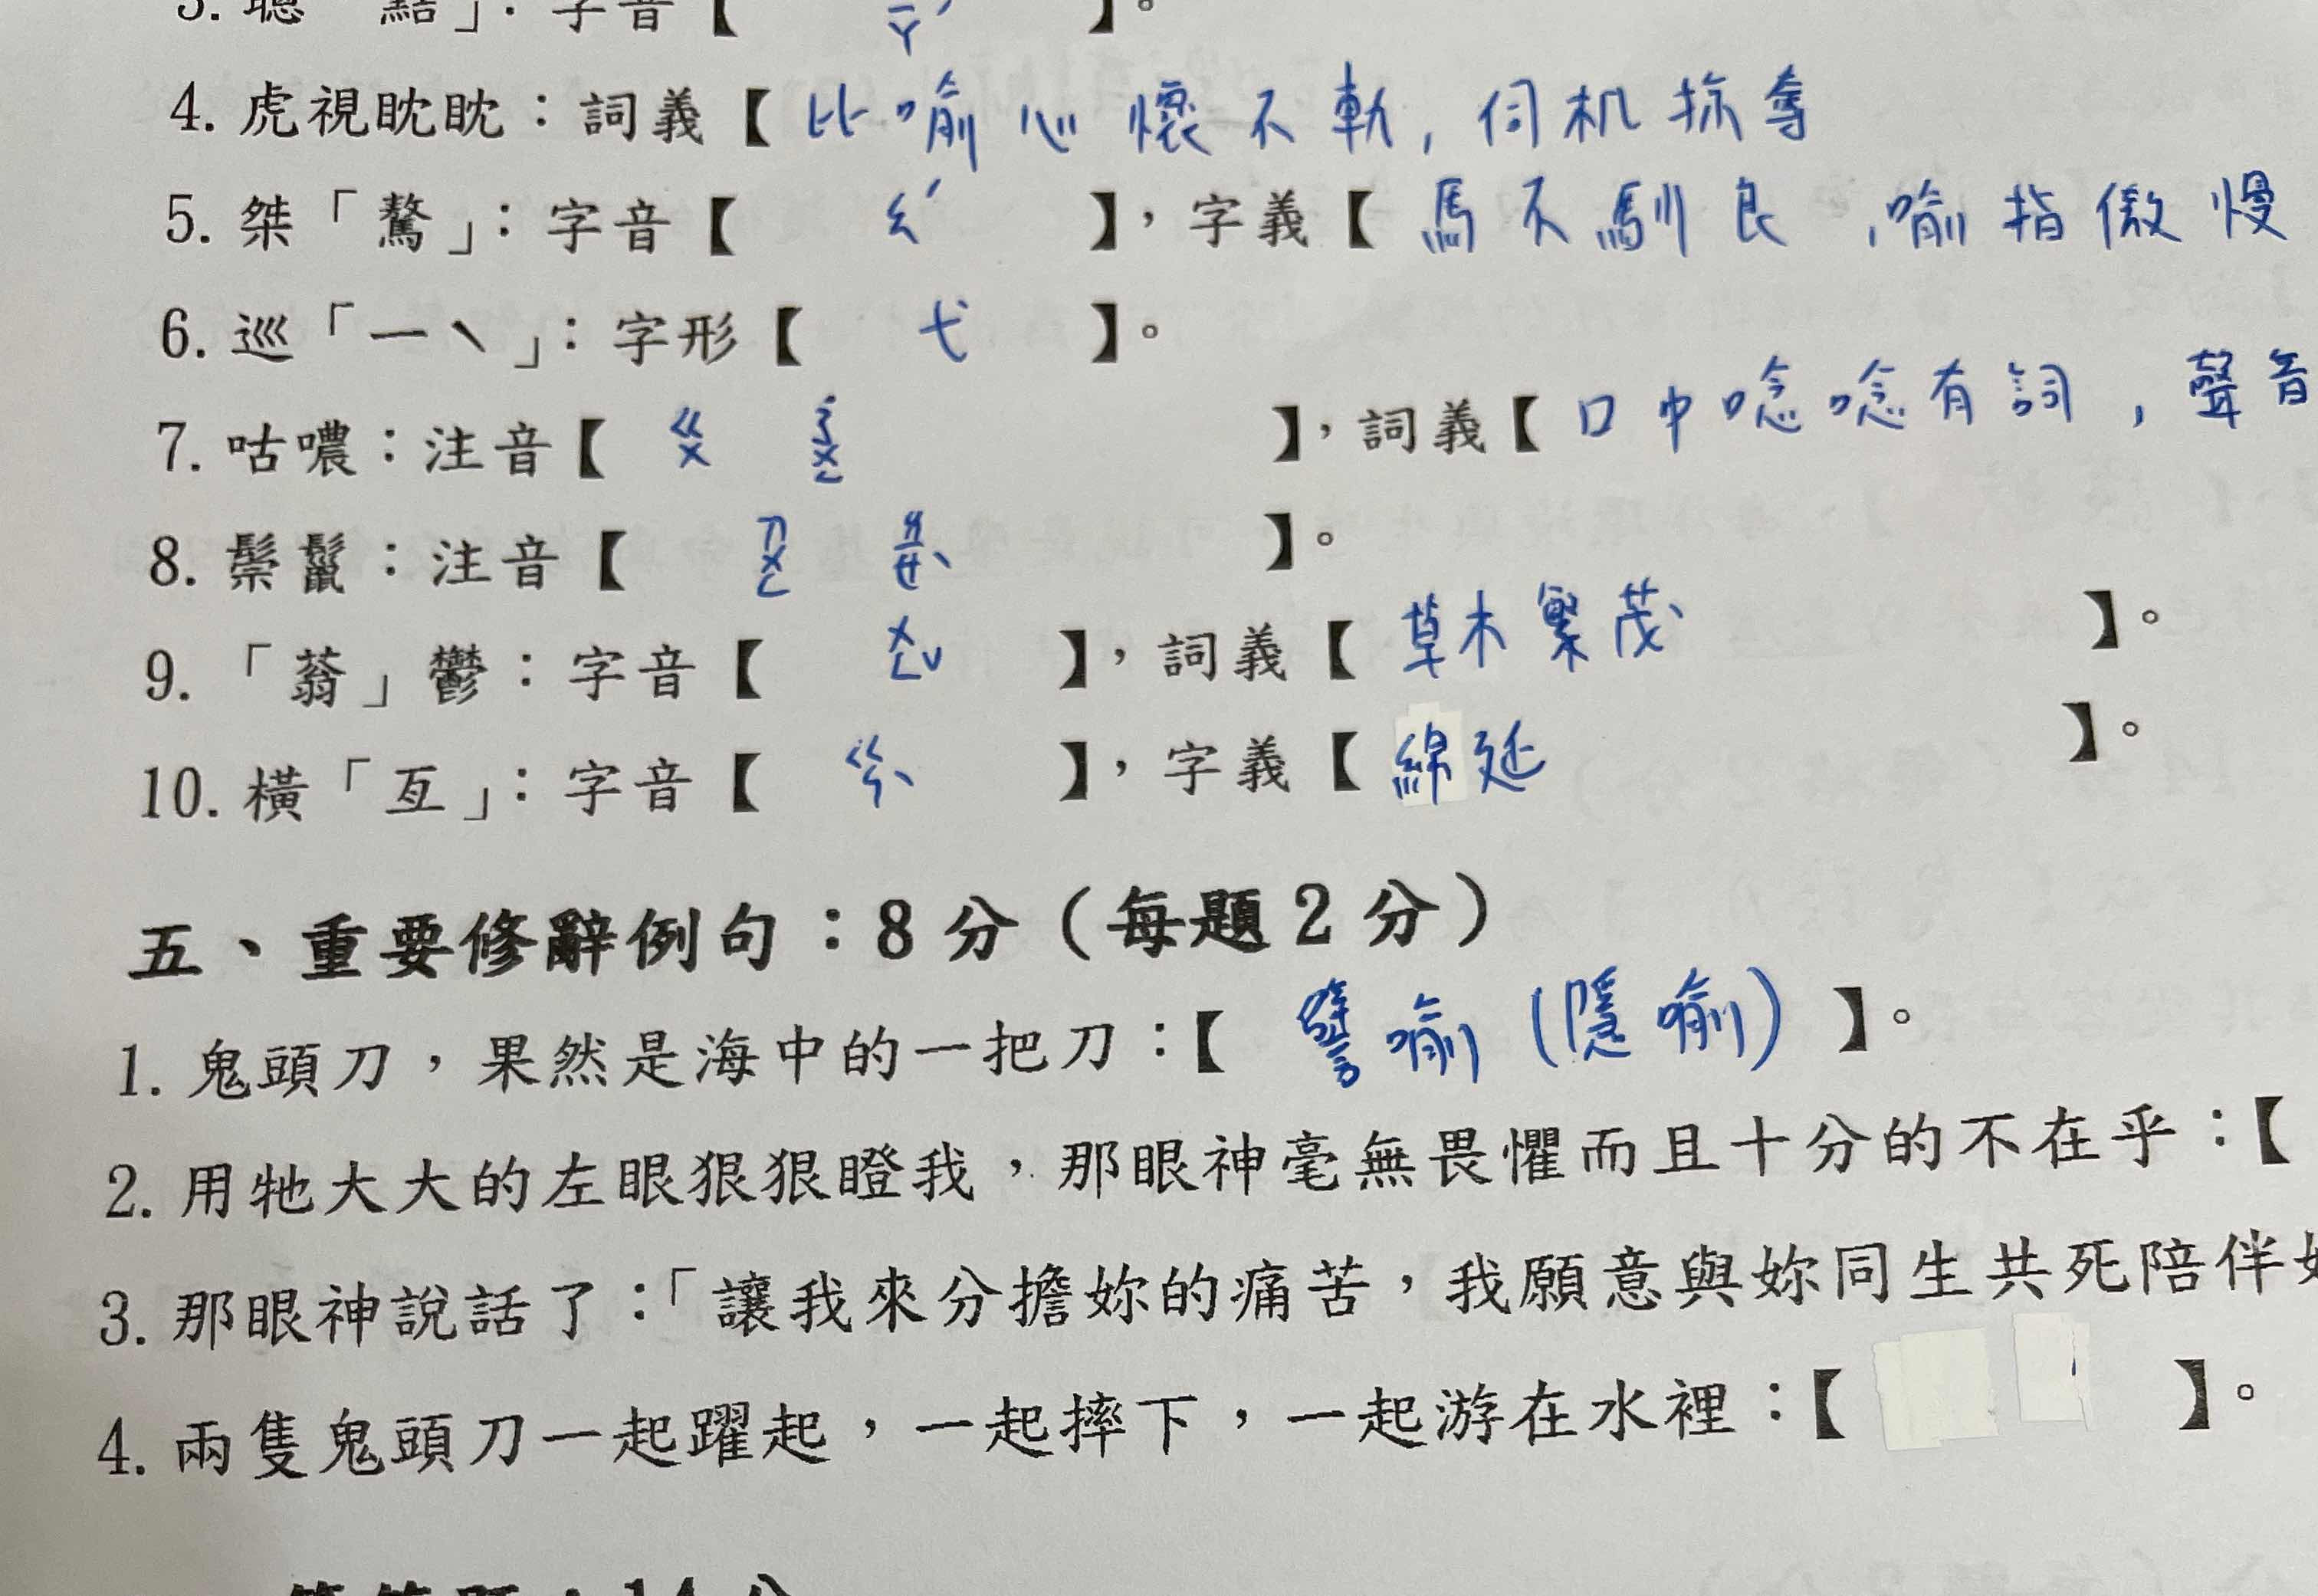 3. 聰「黠」：字音【ㄒㄧㄚˊ】。
4. 虎視眈眈：詞義【比喻心懷不軌，伺机掠奪
5. 桀「驁」：字音【ㄠˊ】，字義【馬不馴良，喻指傲慢
6. 巡「ㄧˋ」：字形【弋】。
7. 咕噥：注音【ㄍㄨ ㄋㄨㄥˊ】，詞義【口中唸唸有詞，聲音
8. 鬃鬣：注音【ㄗㄨㄥ ㄌㄧㄝˋ】。
9. 「蓊」鬱：字音【ㄨㄥˇ】，詞義【草木繁茂】。
10. 橫「亙」：字音【ㄍㄣˋ】，字義【綿延】。
五、重要修辭例句：8分（每題2分）
1. 鬼頭刀，果然是海中的一把刀：【譬喻(隱喻)】。
2. 用牠大大的左眼狠狠瞪我，那眼神毫無畏懼而且十分的不在乎：【
3. 那眼神說話了：「讓我來分擔妳的痛苦，我願意與妳同生共死陪伴
4. 兩隻鬼頭刀一起躍起，一起摔下，一起游在水裡：【】。